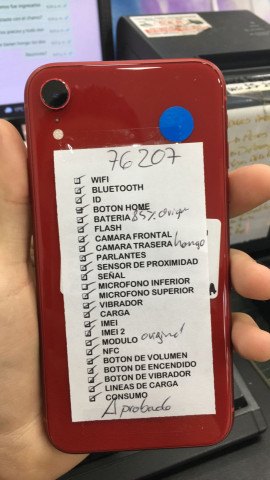 76207
WIFI
BLUETOOTH
ID
BOTON HOME
BATERIA 85% Origi
FLASH
CAMARA FRONTAL
CAMARA TRASERA hongo
PARLANTES
SENSOR DE PROXIMIDAD
SEÑAL
MICROFONO INFERIOR
MICROFONO SUPERIOR
VIBRADOR
CARGA
IMEI
IMEI 2
MODULO original
NFC
BOTON DE VOLUMEN
BOTON DE ENCENDIDO
BOTON DE VIBRADOR
LINEAS DE CARGA
CONSUMO
Aprobado
A